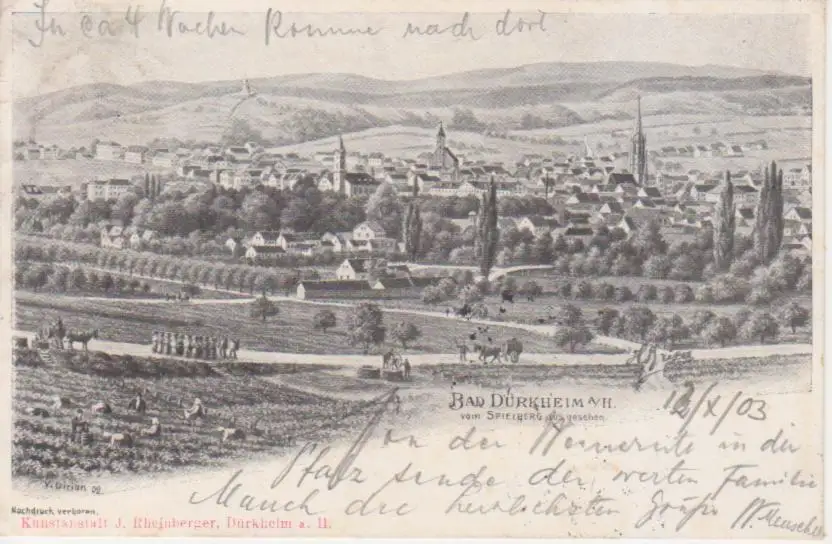 In ca 4 Wochen komme nach dort
BAD DÜRKHEIM A/H.
vom SPIELBERG aus gesehen.
12/X/03
an der Weinernte in der
Pfalz sende der werten Familie
Mauch die herzlichsten Grüße W
Nachdruck verboten.
Kunstanstalt J. Rheinberger, Dürkheim a. H.